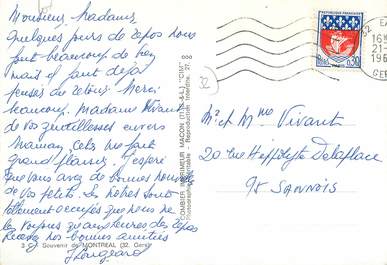 Monsieur, Madame,
Quelques jours de repos nous
font beaucoup de bien
mais il faut déjà
penser au retour. Merci
beaucoup Madame Vivant
de vos gentillesses envers
Maman, cela me fait
grand plaisir. J'espère
que vous avez de bonnes nouvelles
de vos petits. Les nôtres sont
tellement occupés que nous ne
les voyons qu'aux heures des repas
Recevez nos bonnes amitiés
3 Souvenir de MONTREAL (32. Gers)
COMBIER IMPRIMEUR MACON (S.-&-L.) "CIM"
Reproduction Interdite.
32
16H
21-
196
GERS
REPUBLIQUE FRANÇAISE
PARIS 0,30
M. et Mme Vivant
20 rue Hippolyte Delaplace
95 SANNOIS